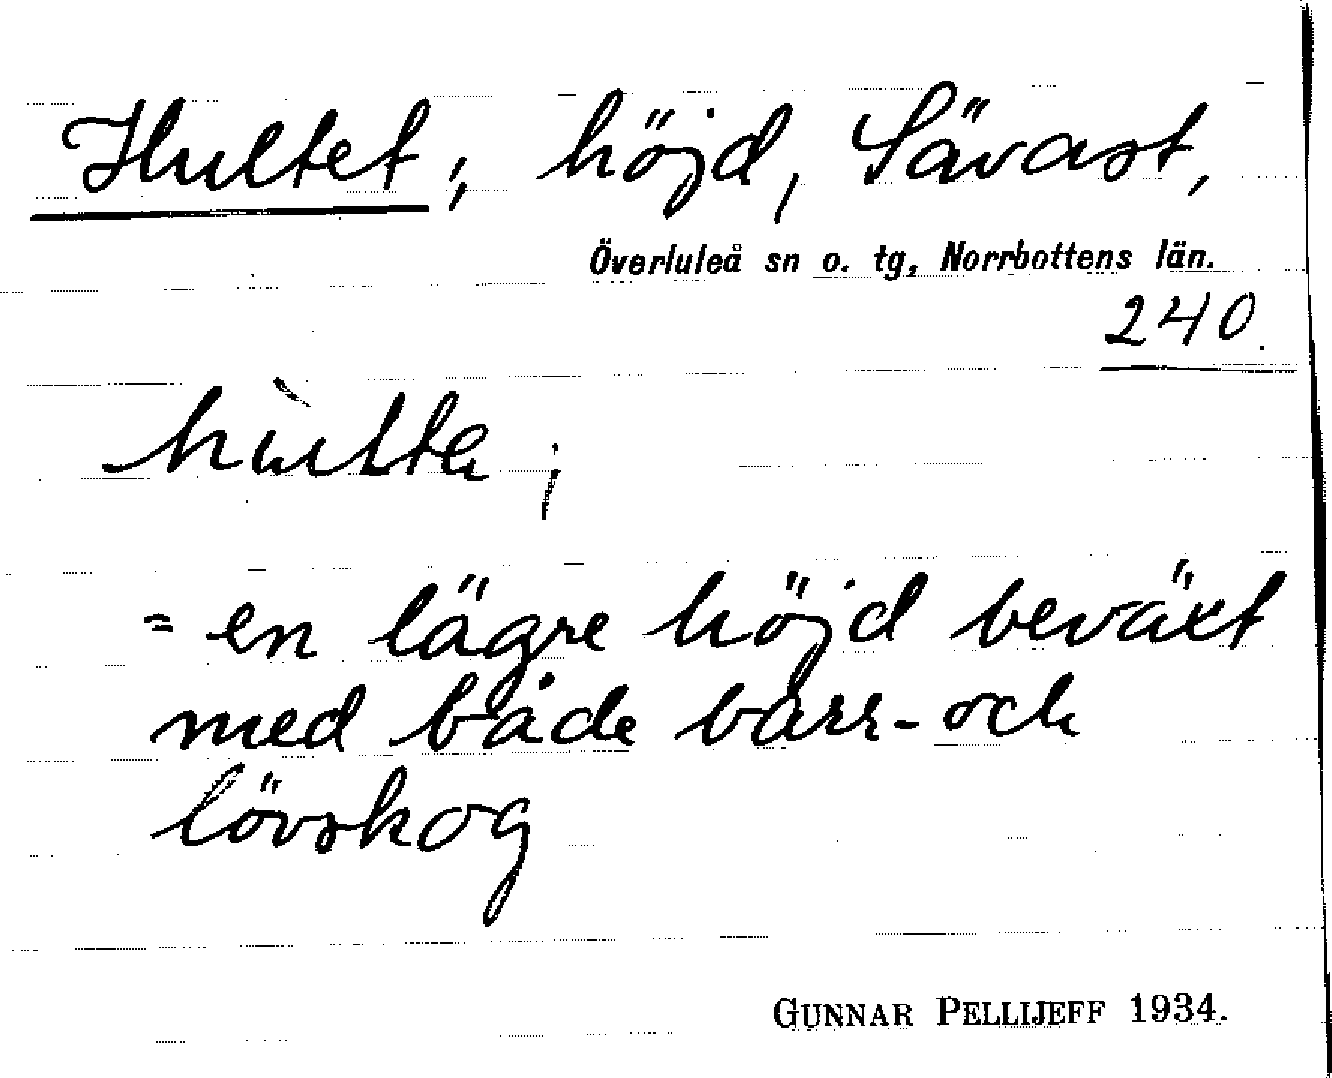 Hultet; höjd, Sävast,
Överluleå sn o. tg, Norrbottens län.
240.
= en lägre höjd beväxt
med både barr- och
lövskog
GUNNAR PELLIJEFF 1934.